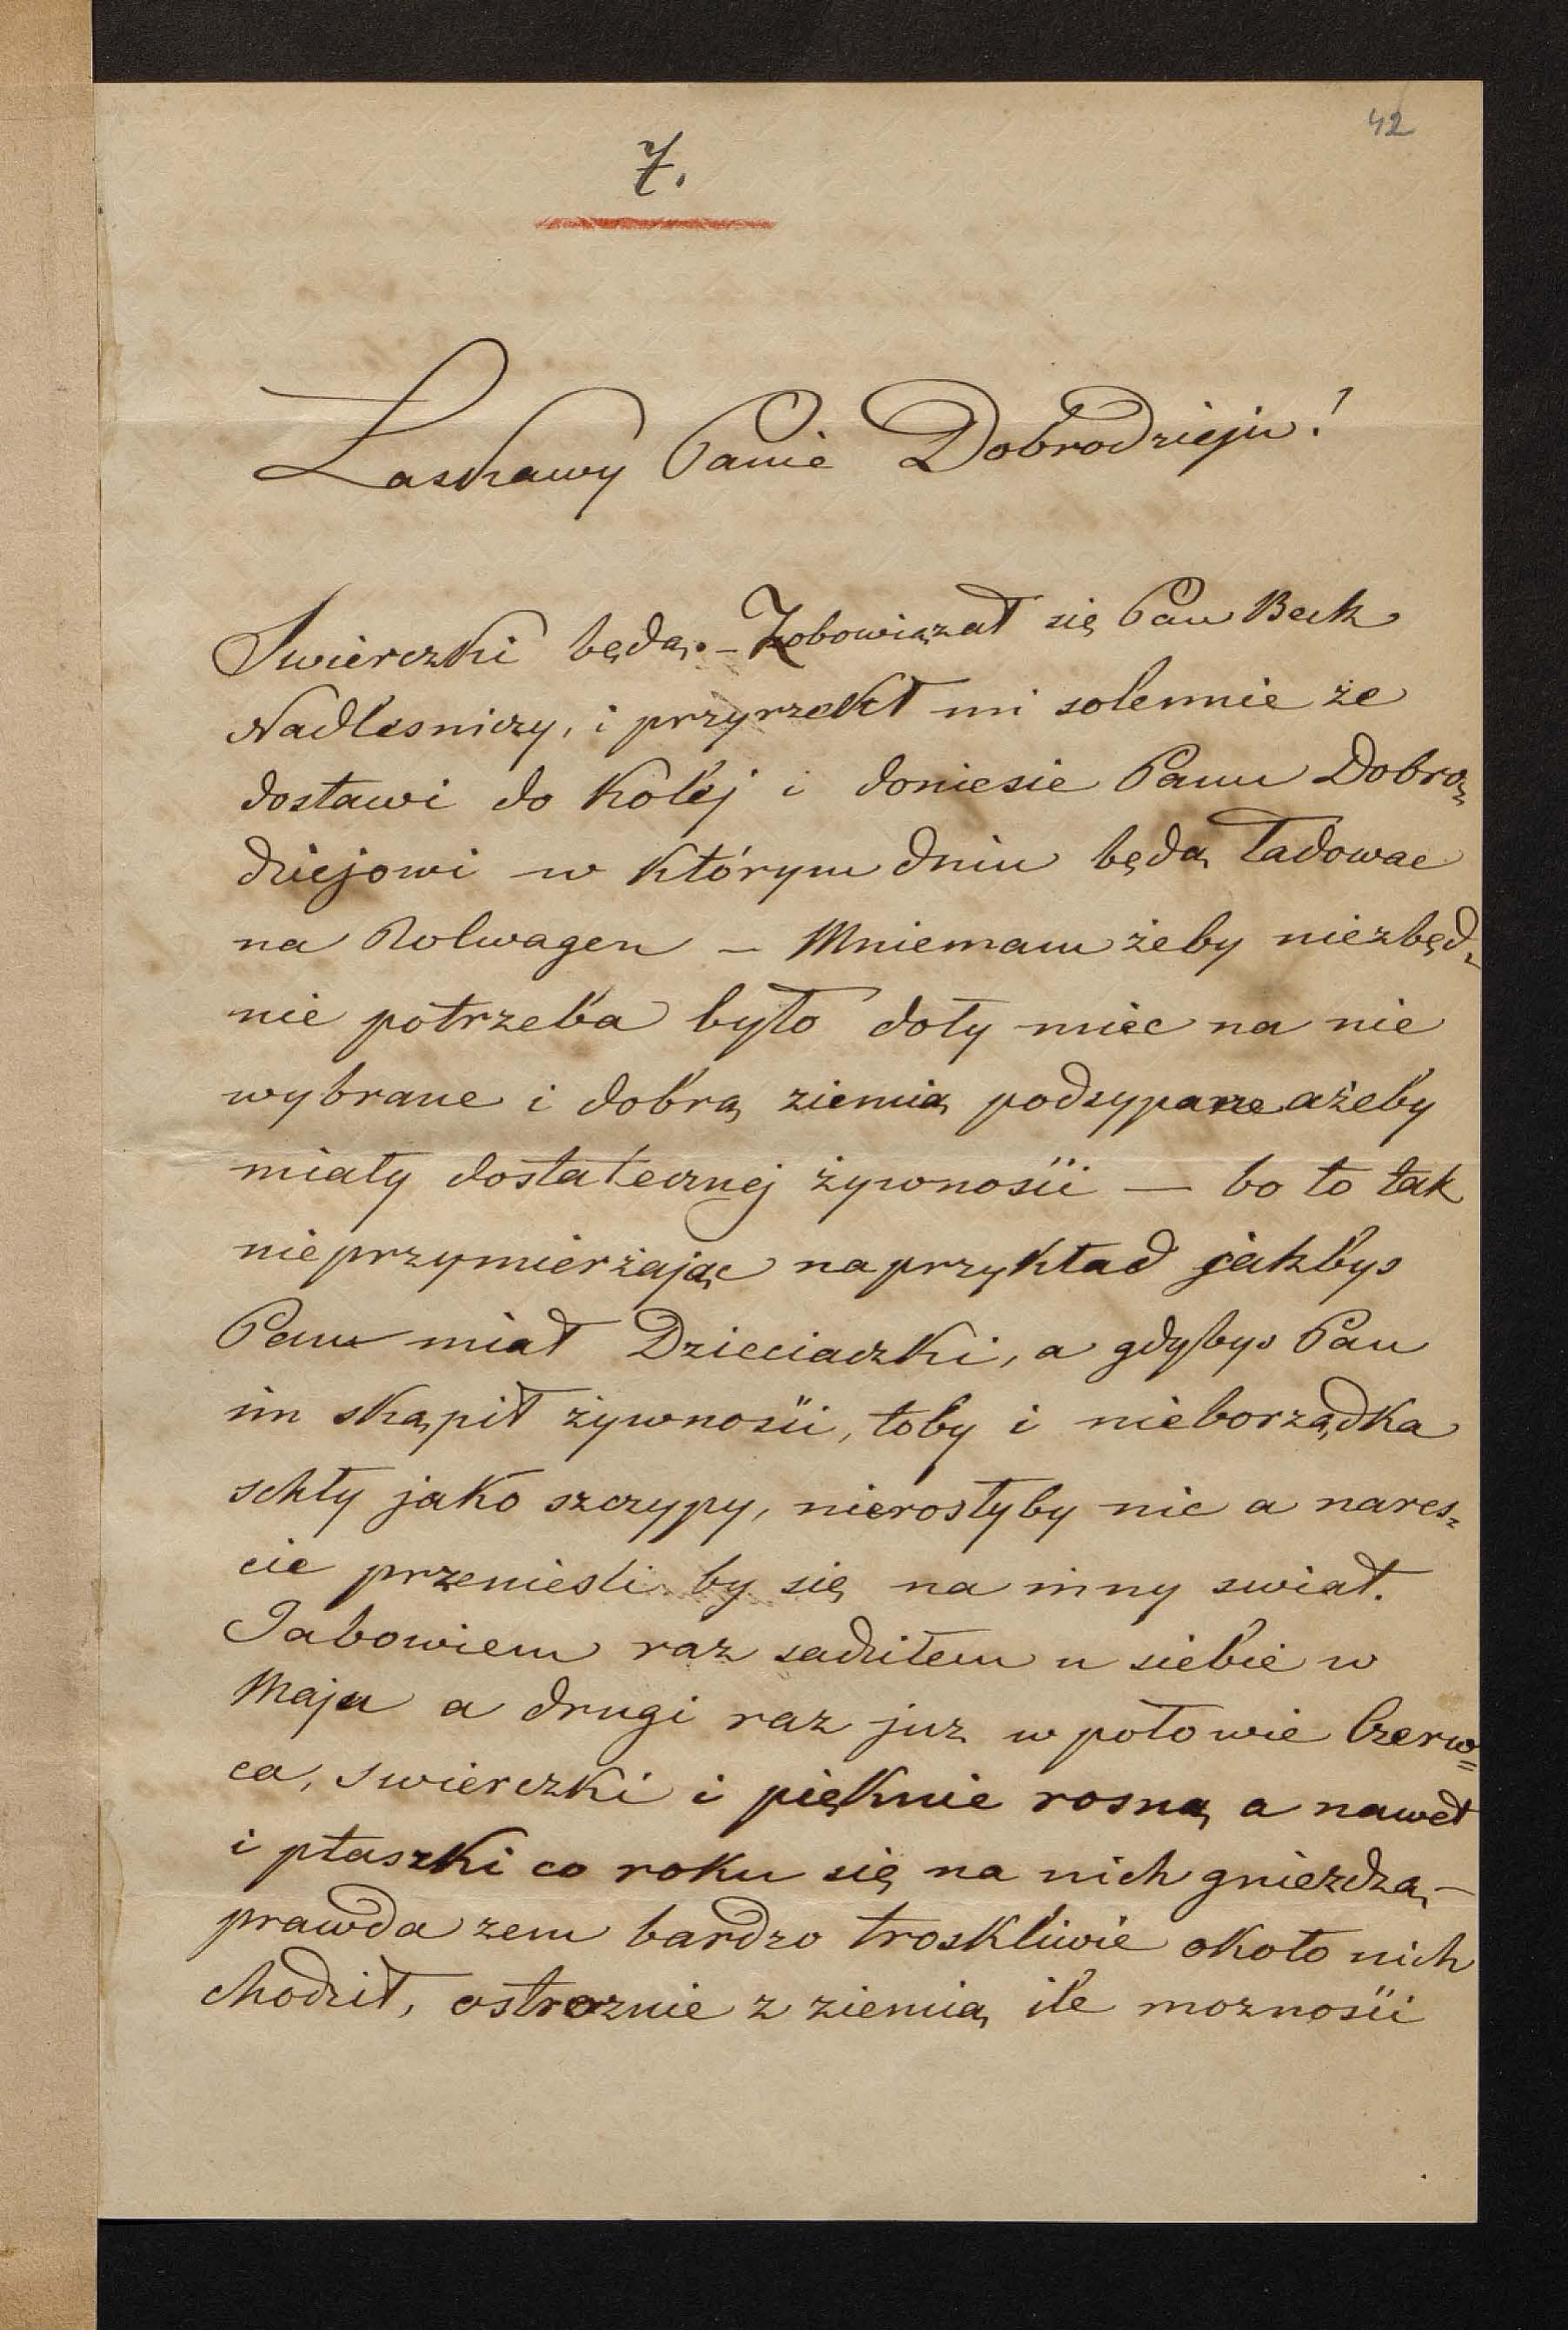 42
7.
Łaskawy Panie Dobrodzieju!
Swierczki będą. – Zobowiązał się Pan Beck
Nadlesniczy, i przyrzekł mi solennie że
dostawi do kolej i doniesie Panu Dobro=
dziejowi w którym dniu będą ładowac
na Rolwagen – Mniemam żeby niezbęd=
nie potrzeba było doły miec na nie
wybrane i dobrą ziemią podsypane ażeby
miały dostatecznej żywności — bo to tak
nieprzymierżając naprzykład jakbys
Pan miał Dzieciaczki, a gdybys Pan
im skąpił żywności, toby i nieborządka
schły jako szczypy, nierosłyby nic a nares=
cie przeniesli by się na inny swiat.
Jabowiem raz sadziłem u siebie w
Maju a drugi raz juz w połowie Czerw=
ca, swierczki i pięknie rosną a nawet
i ptaszki co roku się na nich gnieżdżą –
prawda zem bardzo troskliwie około nich
chodził, ostroznie z ziemią ile moznosci